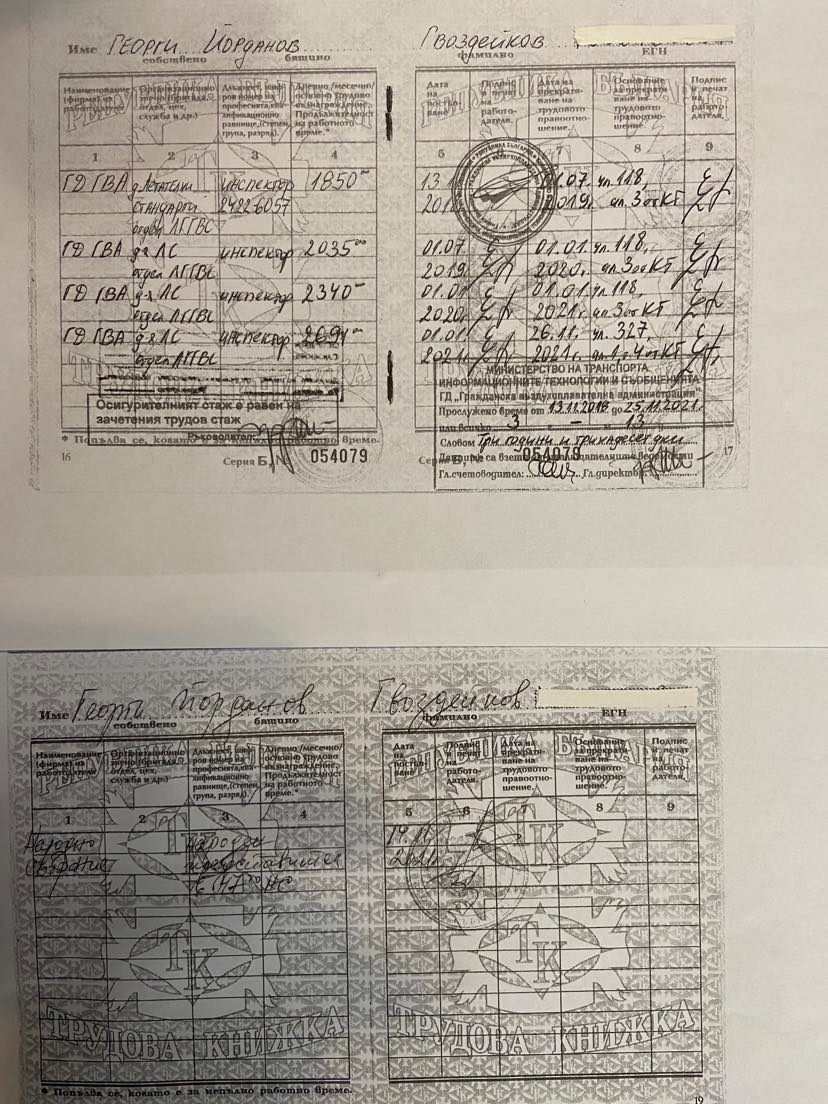 Име ГЕОРГИ ЙОРДАНОВ ГВОЗДЕЙКОВ
собствено бащино фамилно ЕГН
Наименование (фирма) на работодателя
Организационно звено (бригада, отдел, цех, служба и др.)
Длъжност, шифров номер на професията, квалификационно равнище, (степен, група, разряд).
Дневно /месечно/ основно трудово възнаграждение. Продължителност на работното време.*
Дата на постъпване
Подпис и печат на работодателя.
Дата на прекратяване на трудовото правоотношение.
Основание за прекратяване на трудовото правоотношение.
Подпис и печат на работодателя.
1 2 3 4 5 6 7 8 9
ГД ГВА д. Летателни инспектор 1850 00 13.1 01.07. чл.118,
стандарти 24226057 2019г. ал. 3 от КТ
отдел ЛГГВС
ГД ГВА д-я ЛС инспектор 2035 00 01.07 01.01. чл.118,
отдел ЛГГВС 2019г. 2020г. ал. 3 от КТ
ГД ГВА д-я ЛС инспектор 2340 00 01.01 01.01. чл.118,
отдел ЛГГВС 2020г. 2021г. ал. 3 от КТ
ГД ГВА д-я ЛС инспектор 2691 00 01.01 26.11. чл. 327,
отдел ЛГГВС 2021г. 2021г.
Осигурителният стаж е равен на
зачетения трудов стаж
Ръководител:
* Попълва се, когато е за непълно работно време.
16 Серия Б, № 054079
МИНИСТЕРСТВО НА ТРАНСПОРТА
ИНФОРМАЦИОННИТЕ ТЕХНОЛОГИИ И СЪОБЩЕНИЯТА
ГД „Гражданска въздухоплавателна администрация"
Прослужено време от 13.11.2018 до 25.11.2021.
или всичко 3 - 13
Словом Три години и тринадесет дни
Данните са взети от разплащателните ведомости
Серия Б, № 054079 17
Гл.счетоводител: Гл.директор:
Име Георги Йорданов Гвоздейков
собствено бащино фамилно ЕГН
Наименование (фирма) на работодателя
Организационно звено (бригада, отдел, цех, служба и др.)
Длъжност, шифров номер на професията, квалификационно равнище, (степен, група, разряд).
Дневно /месечно/ основно трудово възнаграждение. Продължителност на работното време.*
Дата на постъпване
Подпис и печат на работодателя.
Дата на прекратяване на трудовото правоотношение.
Основание за прекратяване на трудовото правоотношение.
Подпис и печат на работодателя.
1 2 3 4 5 6 7 8 9
Народно Народен
събрание представител 2021
в 47 то НС
ТК ТК
ТРУДОВА КНИЖКА ТРУДОВА КНИЖКА
* Попълва се, когато е за непълно работно време.
19